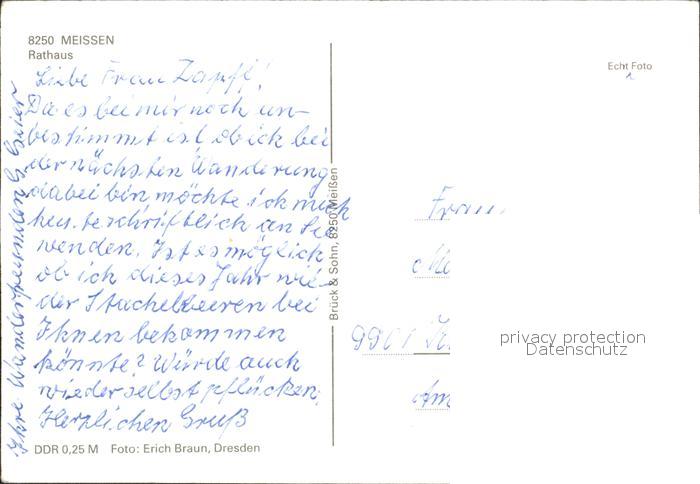 8250 MEISSEN
Rathaus
Echt Foto
Liebe Frau Zapff!
Da es bei mir noch un-
bestimmt ist ob ich bei
der nächsten Wanderung
dabei bin möchte ich mich
heute schriftlich an Sie
wenden. Ist es möglich
ob ich dieses Jahr wie-
der Stachelbeeren bei
Ihnen bekommen
könnte? Würde auch
wieder selbst pflücken.
Herzlichen Gruß
Ihre Wanderfreundin G. Geier
Brück & Sohn, 8250 Meißen
Frau
9901
Am
privacy protection
Datenschutz
DDR 0,25 M Foto: Erich Braun, Dresden